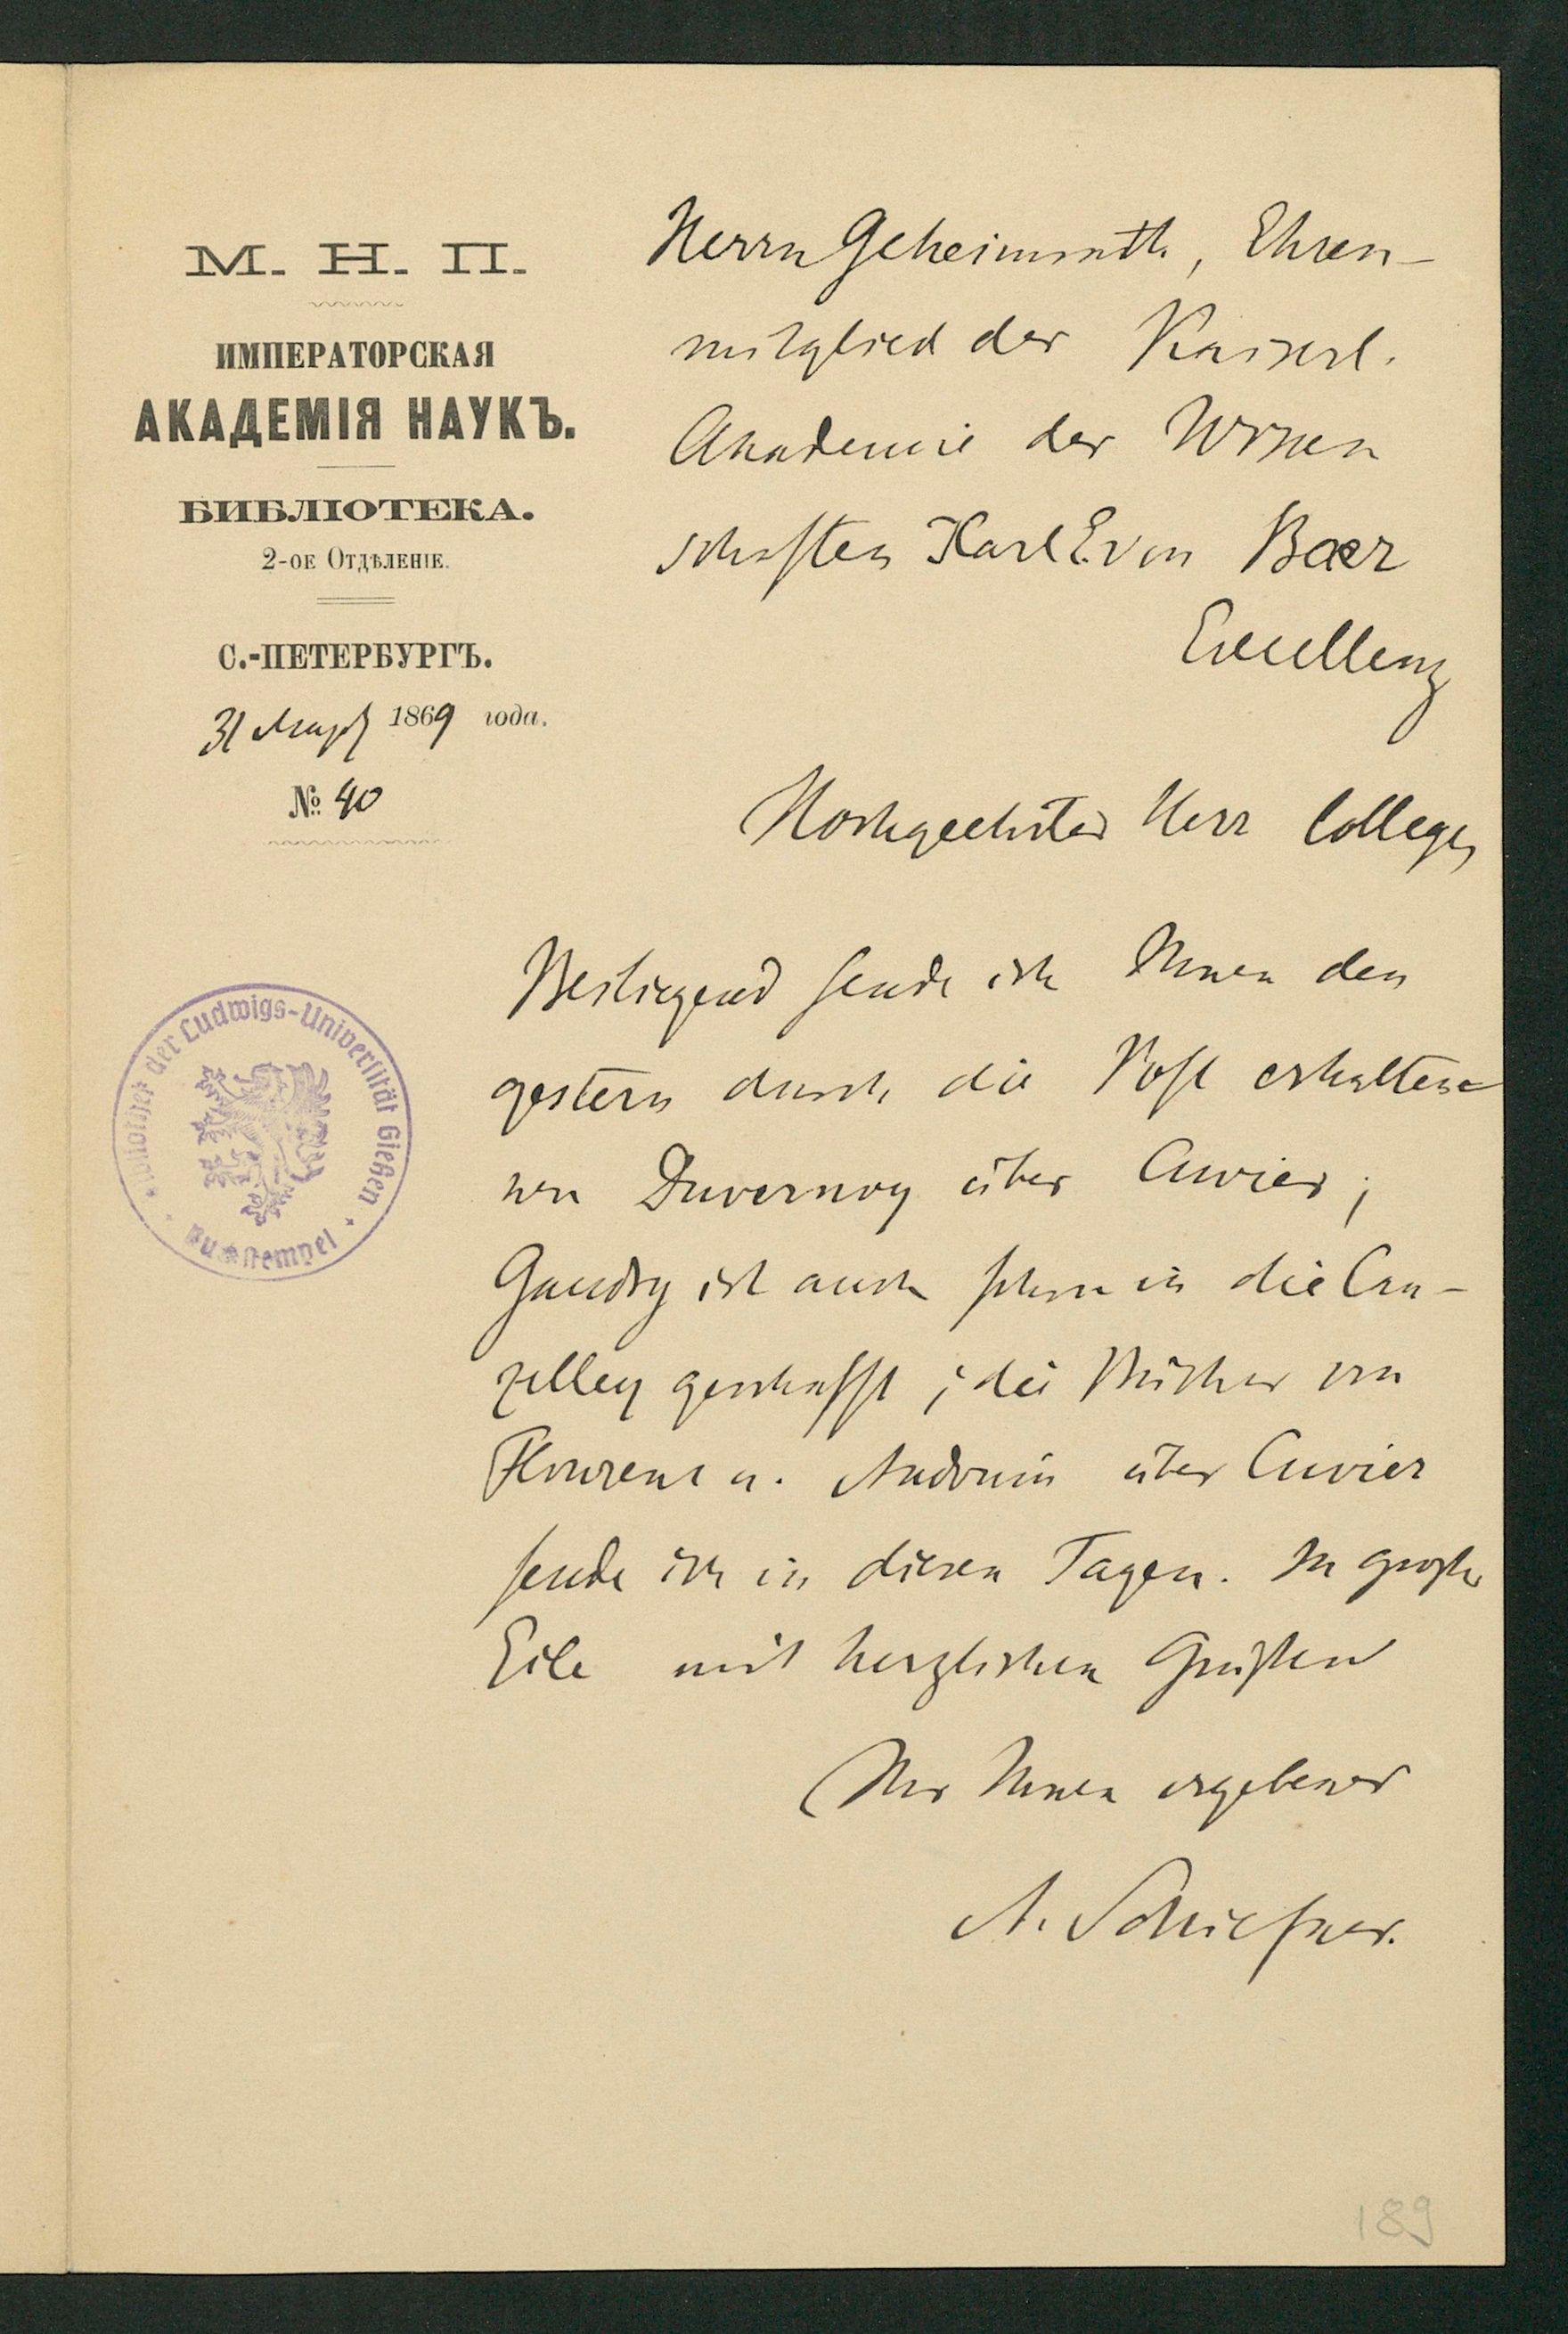 М. Н. П.
ИМПЕРАТОРСКАЯ
АКАДЕМІЯ НАУКЪ.
БИБЛІОТЕКА.
2-ОЕ ОТДѢЛЕНІЕ.
С.-ПЕТЕРБУРГЪ.
31 Март 1869 года.
№ 40
Herrn Geheimrath, Ehren-
mitglied der Kaiserl.
Akademie der Wissen
schaften Karl E. von Baer
Excellenz
Hochgeehrter Herr College,
Beiliegend sende ich Ihnen den
gestern durch die Post erhaltene
nen Duvernoy über Cuvier;
Gaudry ist auch schon in die Can-
zelley geschafft; die Bücher von
Flourens u. Audouin über Cuvier
sende ich in diesen Tagen. In großer
Eile mit herzlichen Grüßen
Ihr Ihnen ergebener
A. Schiefner.
Bibliothek der Ludwigs-Universität Gießen
Buchstempel
189